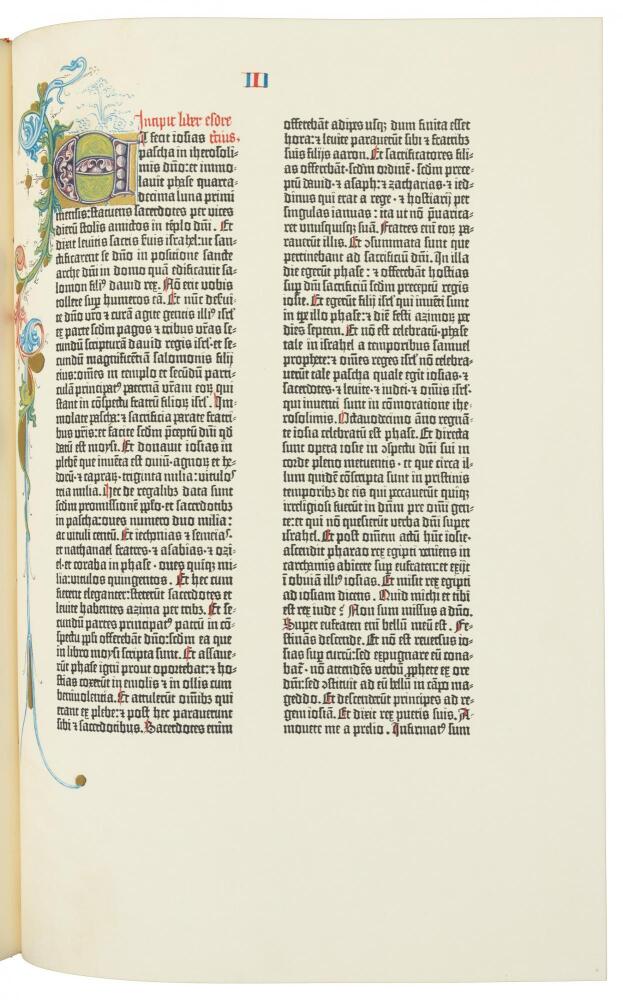 III
Incipit liber esdre
tercius.
Et fecit iosias
pascha in iherosoli-
mis dño: et immo-
lavit phase quarta-
decima luna primi
mensis: statuens sacerdotes per vices
dierū stolis amictos in tēplo dñi. Et
dixit levitis sacris ſuis israhel: ut san-
ctificarent se dño in positione sancte
arche dñi in domo quā edificavit sa-
lomon filiꝰ david rex. Nō erit vobis
tollere sup humeros eā. Et nūc deſui-
te dño vr̄o ⁊ curā agite gentis illiꝰ isrl̓
ex parte scdm pagos ⁊ tribus vr̄as se-
cundū scripturā david regis isrl̓ et se-
cundū magnificētiā salomonis filij
eius: omēs in templo et secūdū parti-
culā principatꝰ paternā vr̄am eoꝝ qui
stant in cōspectu fratrū filioꝝ isrl̓. Im-
molate pascha: ⁊ sacrificia parate fratri-
bus vr̄is: et facite scdm p̄ceptū dñi qd̓
datū est moysi. Et donavit iosias in
plebē que inventa est oviū agnoꝝ et he-
docꝝ ⁊ capraꝝ triginta milia: vitulos
tria milia. Hec de regalibꝫ data sunt
scdm promissionē pplo. et sacerdotibꝫ
in pascha: oves numero duo milia:
ac vituli centū. Et iechonias ⁊ semeias.
et nathanael fratres. ⁊ asabias. ⁊ ozi-
el. et coraba in phase. oves quīqꝫ mi-
lia: vitulos quingentos. Et hec cum
fierent eleganter: steterūt sacerdotes et
levite habentes azima per tribꝫ. Et se-
cundū partes principatꝰ patrū in cō-
spectu ppli offerebāt dño: scdm ea que
in libro moysi scripta sunt. Et assave-
rūt phase igni prout oportebat: ⁊ ho-
stias coxerūt in emolis ⁊ in ollis cum
benivolentia. Et attulerūt omībꝫ qui
erant ex plebe: ⁊ post hec paraverunt
sibi ⁊ sacerdotibus. Sacerdotes enim
offerebāt adipes usqꝫ dum finita esset
hora: ⁊ levite paraverūt sibi ⁊ fratribꝫ
suis filijs aaron. Et sacrificatores fili-
as offerebāt. scdm ordinē. scdm prece-
ptū david. ⁊ asaph: ⁊ zacharias. ⁊ ied-
dinus qui erat a rege. ⁊ hostiarij per
singulas ianuas: ita ut nō p̄varica-
ret unusquisqꝫ suā. Fratres enī eoꝝ pa-
raverūt illis. Et ↄsummata sunt que
pertinebant ad sacrificiū dñi. In illa
die egerūt phase: ⁊ offerebāt hostias
sup dñi sacrificiū scdm preceptū regis
iosie. Et egerūt filij isrl̓ qui invēti sunt
in tꝑe illo phase: ⁊ diē festi azimoꝝ per
dies septem. Et nō est celebratū. phase
tale in israhel a temporibus samuel
prophete: ⁊ omēs reges isrl̓ nō celebra-
verūt tale pascha quale egit iosias. ⁊
sacerdotes. ⁊ levite. ⁊ iudei. ⁊ omīs isrl̓.
qui inventi sunt in cōmoratione ihe-
rosolimis. Octavodecimo āno regnā-
te iosia celebratū est phase. Et directa
sunt opera iosie in ↄspectu dñi sui in
corde pleno metuentis. et que circa il-
lum quidē cōscripta sunt in pristinis
temporibꝫ de eis qui peccaverūt quiqꝫ
irreligiosi fuerūt in dñm pre omi gen-
te: et qui nō quesierūt verba dñi super
israhel. Et post omēm actū hūc iosie.
ascendit pharao rex egipti veniens in
carchamis abicere sup eufraten: et exijt
ī obviā illiꝰ iosias. Et misit rex egipti
ad iosiam dicens. Quid michi et tibi
est rex iude? Non sum missus a dño.
Super eufraten enī bellū meū est. Fe-
stinās descende. Et nō est reversus io-
sias sup currū: sed expugnare eū cona-
bat̄. nō attendēs verbū ꝓphete ex ore
dñi: sed ↄstituit ad eū bellū in cāpo ma-
geddo. Et descenderūt principes ad re-
gem iosiā. Et dixit rex pueris suis. A-
movete me a prelio. Infirmatꝰ sum